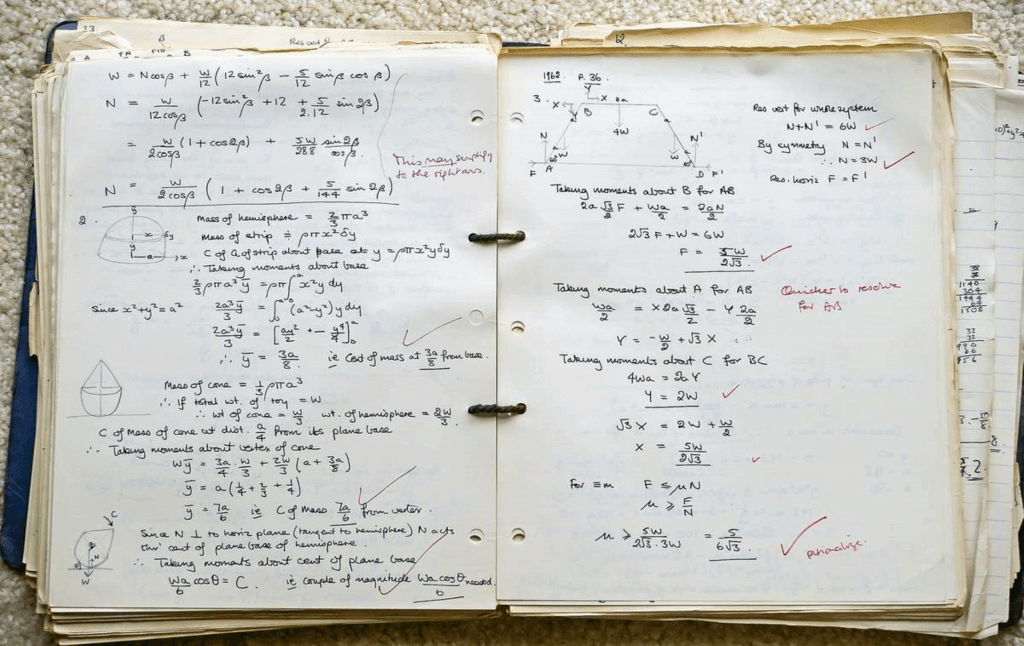 33
β
B
W = Ncosβ + W/12 (12 sin²β − 5/12 sinβ cosβ)
N = W/12cosβ (−12 sin²β + 12 + 5/2.12 sin 2β)
= W/2cosβ (1 + cos2β) + 5W/288 sin2β/cosβ.
This may simplify
to the right ans.
N = W/2cosβ (1 + cos2β + 5/144 sin 2β)
2.
Mass of hemisphere = 2/3 πa³
Mass of strip ≑ ρπx²δy
C of G of strip about base at y = ρπx²yδy
∴ Taking moments about base
2/3 ρπa³ȳ = ρπ∫x²y dy
Since x²+y²=a² 2a³ȳ/3 = ∫(a²−y²)y dy
2a³ȳ/3 =
∴ ȳ = 3a/8 ie Cent of mass at 3a/8 from base.
Mass of cone = 1/3 ρπa³
∴ If total wt. of toy = W
∴ wt of cone = W/3 wt. of hemisphere = 2W/3.
C of Mass of cone at dist. a/4 from its plane base
∴ Taking moments about vertex of cone
Wȳ = 3a/4 . W/3 + 2W/3 (a + 3a/8)
ȳ = a(1/4 + 2/3 + 1/4)
ȳ = 7a/6 ie C of Mass 7a/6 from vertex.
C
Since N ⊥ to horiz plane (tangent to hemisphere) N acts
thro' cent of plane base of hemisphere.
∴ Taking moments about cent of plane base
Wa/6 cosθ = C. ie couple of magnitude Wa cosθ/6 needed.
N
W
12.
1962 P. 36.
3.
Y
X
X
B
C
4W
N
N'
W
W
F
A
D
F'
Res vert for whole system
N+N' = 6W
By symmetry N = N'
∴ N = 3W
Res. horiz F = F'
Taking moments about B for AB
2a√3/2 F + Wa/2 = 2aN/2
2√3 F + W = 6W
F = 5W/2√3.
Taking moments about A for AB
Quicker to resolve
for AB
Wa/2 = X2a√3/2 − Y 2a/2
Y = −W/2 + √3 X
Taking moments about C for BC
4Wa = 2a Y
Y = 2W
√3 X = 2W + W/2
X = 5W/2√3
For ≡m F ≤ μN
μ ≥ F/N
μ ≥ 5W/2√3.3W = 5/6√3.
rationalize.